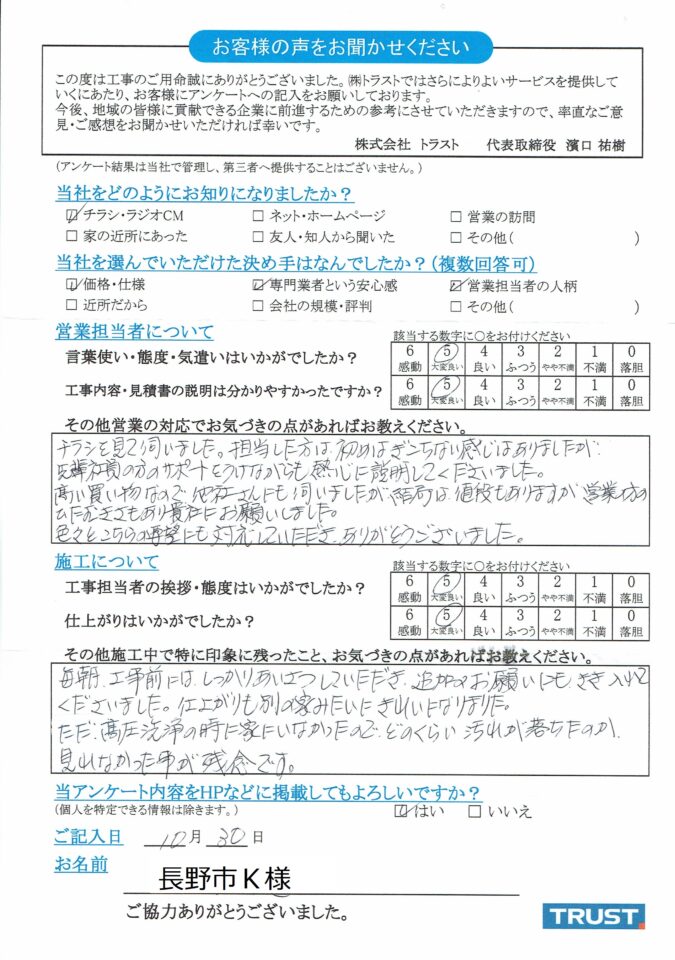 お客様の声をお聞かせください
この度は工事のご用命誠にありがとうございました。㈱トラストではさらによりよいサービスを提供して
いくにあたり、お客様にアンケートへの記入をお願いしております。
今後、地域の皆様に貢献できる企業に前進するための参考にさせていただきますので、率直なご意
見・ご感想をお聞かせいただければ幸いです。
株式会社 トラスト 代表取締役 濱口 祐樹
(アンケート結果は当社で管理し、第三者へ提供することはございません。)
当社をどのようにお知りになりましたか？
☑ チラシ・ラジオCM □ ネット・ホームページ □ 営業の訪問
□ 家の近所にあった □ 友人・知人から聞いた □ その他( )
当社を選んでいただけた決め手はなんでしたか？(複数回答可)
☑ 価格・仕様 ☑ 専門業者という安心感 ☑ 営業担当者の人柄
□ 近所だから □ 会社の規模・評判 □ その他( )
営業担当者について
該当する数字に○をお付けください
言葉使い・態度・気遣いはいかがでしたか？
6 5 4 3 2 1 0
感動 大変良い 良い ふつう やや不満 不満 落胆
工事内容・見積書の説明は分かりやすかったですか？
6 5 4 3 2 1 0
感動 大変良い 良い ふつう やや不満 不満 落胆
その他営業の対応でお気づきの点があればお教えください。
チラシを見て伺いました。担当した方は初めはぎこちない感じはありましたが
先輩社員の方のサポートをうけながらも熱心に説明してくださいました。
高い買い物なので他社さんにも伺いましたが結局は値段もありますが営業の方の
ひたむきさもあり貴社にお願いしました。
色々とこちらの要望にも対応していただき、ありがとうございました。
施工について
該当する数字に○をお付けください
工事担当者の挨拶・態度はいかがでしたか？
6 5 4 3 2 1 0
感動 大変良い 良い ふつう やや不満 不満 落胆
仕上がりはいかがでしたか？
6 5 4 3 2 1 0
感動 大変良い 良い ふつう やや不満 不満 落胆
その他施工中で特に印象に残ったこと、お気づきの点があればお教えください。
毎朝、工事前にはしっかりあいさつしていただき、追加のお願いにもきき入れて
くださいました。仕上がりも別の家みたいにきれいになりました。
ただ、高圧洗浄の時に家にいなかったので、どのくらい汚れが落ちたのか、
見れなかった事が残念です。
当アンケート内容をHPなどに掲載してもよろしいですか？
(個人を特定できる情報は除きます。) ☑ はい □ いいえ
ご記入日 10月 30日
お名前
長野市K様
ご協力ありがとうございました。
TRUST.